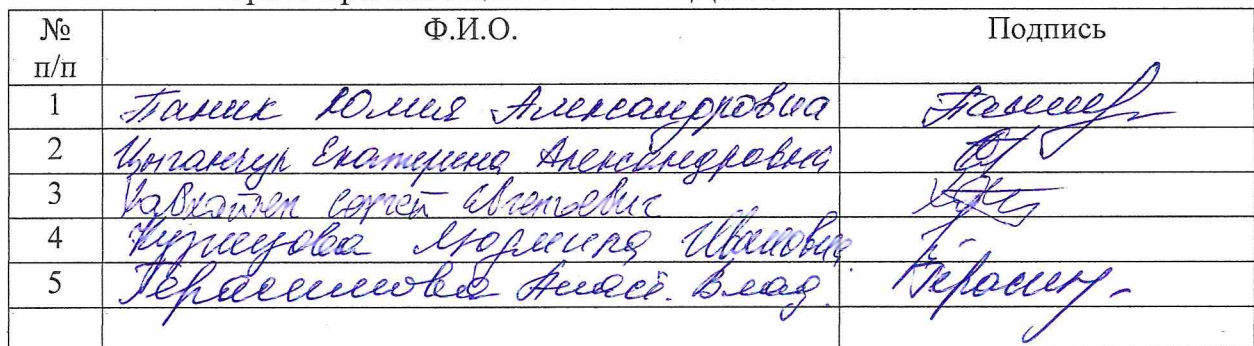 № п/п Ф.И.О. Подпись
1 Паник Юлия Александровна
2 Цыганчук Екатерина Александровна
3 Сергей Евгеньевич
4 Кузнецова Людмила Ивановна
5 Герасимова Анаст. Влад.